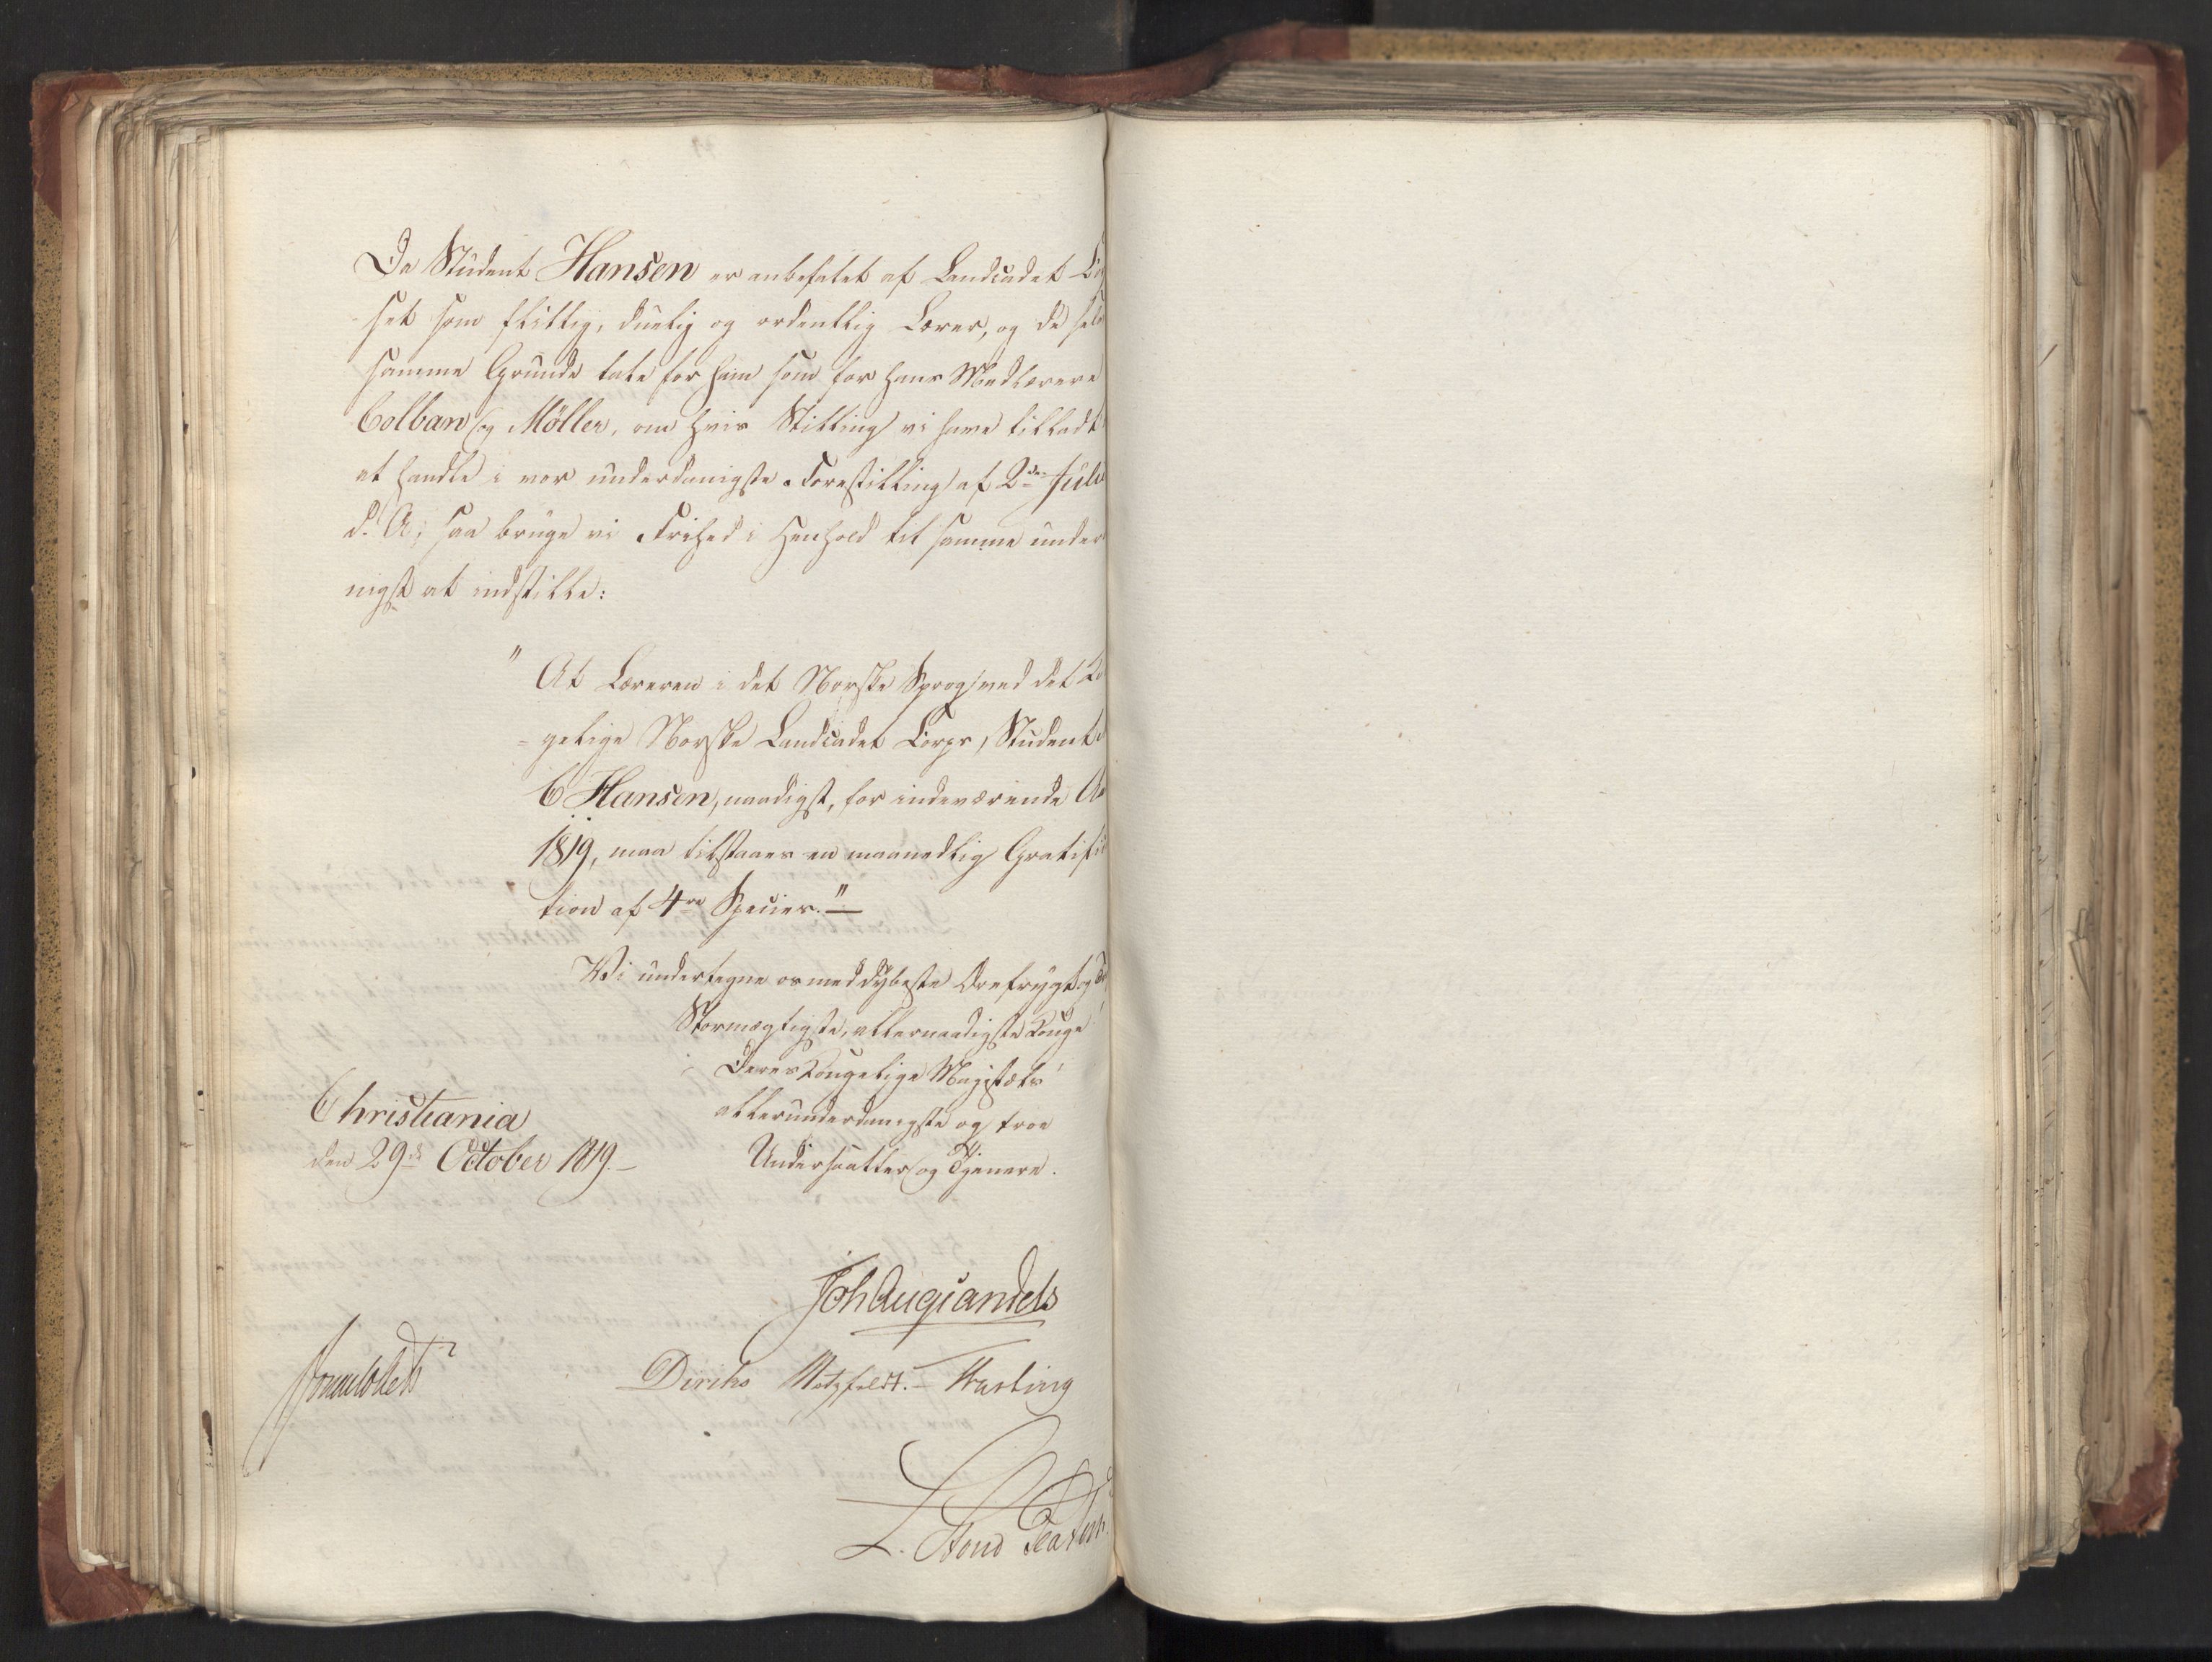 Da Student Hansen er anbefalet af Landcadet Co
set som flittig, duelig og ordentlig Lærer, og da
samme Grunde tale for ham som for hans Medlærere
Colban og Möller, om hvis Stilling vi have tilladt
at handle i vor underdanigste Forestilling af 2den Juli
d. A; saa bruge vi Frihed i Henhold til samme under
nigst at indstille:
" At Læreren i det Norske Sprog ved det Ko
- gelige Norske Landcadet Corps, Student
C Hansen, naadigst, for indeværende Aa
1819, maa tilstaaes en maanedlig Gratifi
tion af 4re Specier." —
Vi undertegne os med dybeste Ærefrygt og
Stormægtigste, allernaadigste Konge!
Deres Kongelige Majestæts
allerunderdanigste og troe
Undersaatter og Tjenere.
Christiania
den 29de October 1819. –
Joh Aug Sandels
Diriks Motzfeldt. – Fasting
L.